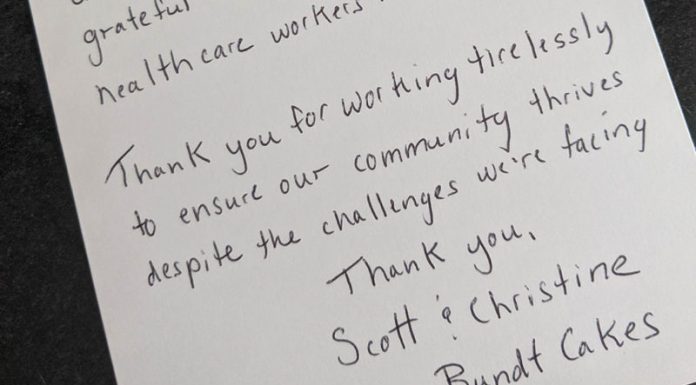 grateful
healthcare workers
Thank you for working tirelessly
to ensure our community thrives
despite the challenges we're facing
Thank you,
Scott & Christine
Bundt Cakes